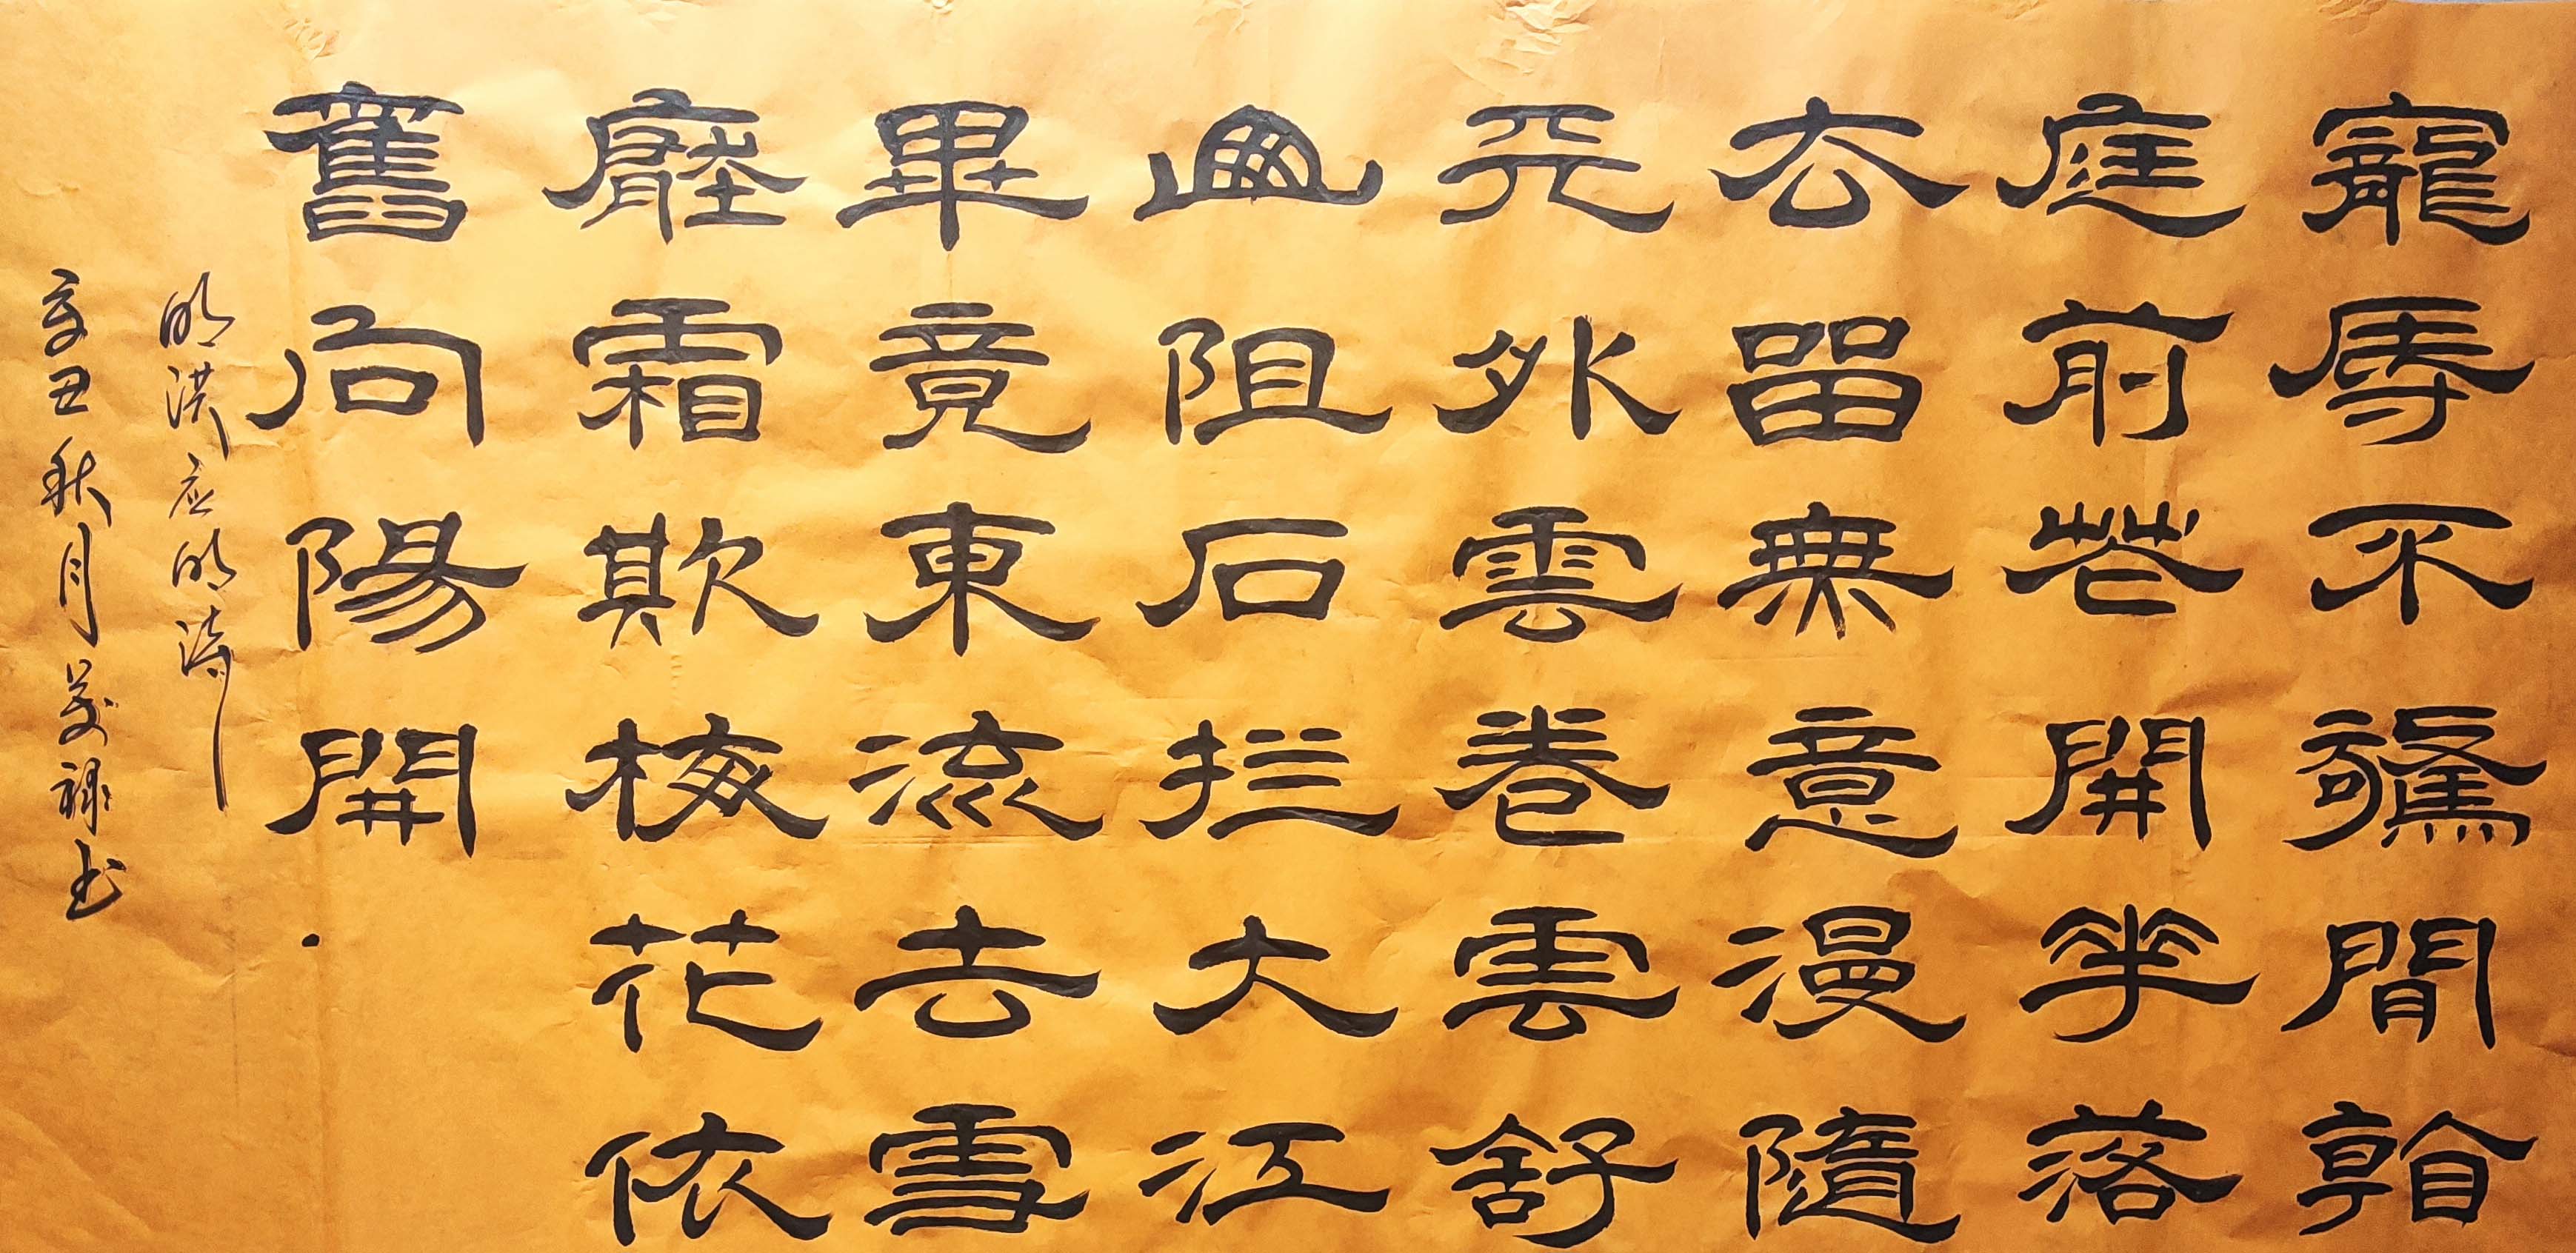 寵辱不驚閒看
庭前花開華落
去留無意漫隨
天外雲卷雲舒
山阻石拦大江
畢竟東流去雪
壓霜欺梅花依
舊向陽開
明洪应明
辛丑秋月禄书